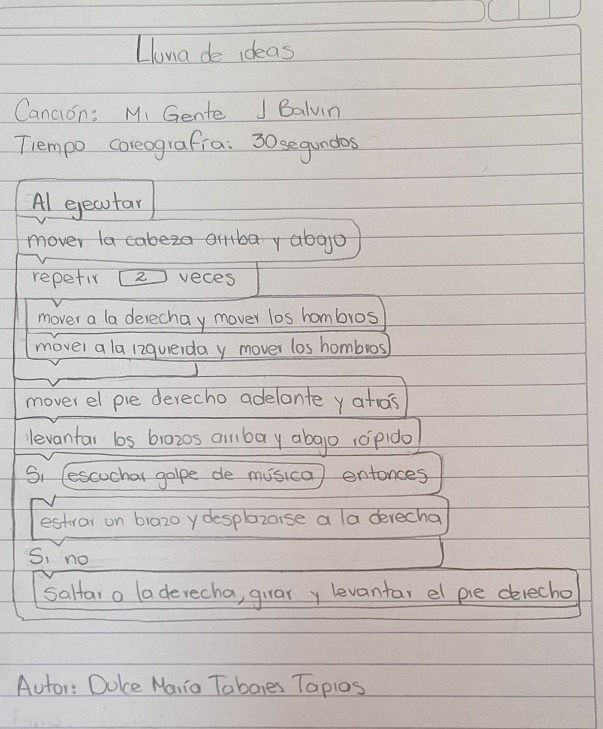 Lluvia de ideas
Canción: Mi Gente J Balvin
Tiempo coreografía: 30 segundos
Al ejecutar
mover la cabeza arriba y abajo
repetir 2 veces
mover a la derecha y mover los hombros
mover a la izquierda y mover los hombros
mover el pie derecho adelante y atrás
levantar los brazos arriba y abajo rápido
Si escuchar golpe de música entonces
estirar un brazo y desplazarse a la derecha
Si no
Saltar a la derecha, girar y levantar el pie derecho
Autor: Dulce María Tabares Tapias